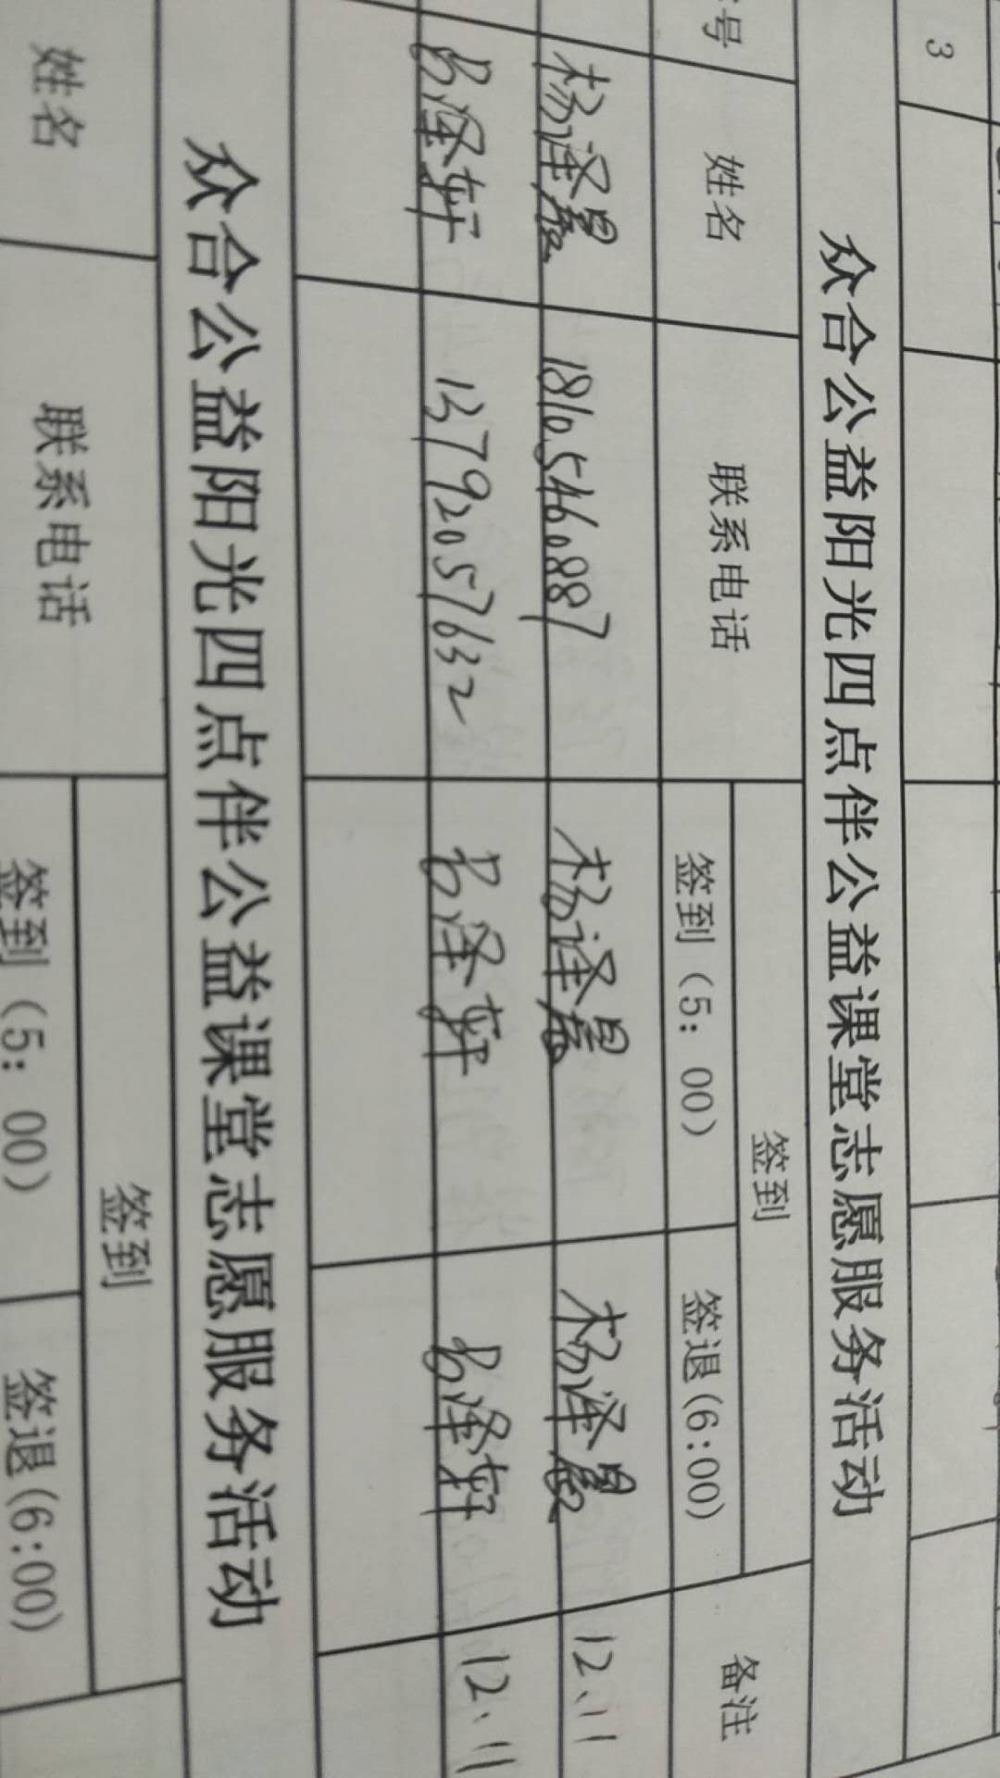 3
众合公益阳光四点伴公益课堂志愿服务活动
号 姓名 联系电话 签到 备注
签到（5：00） 签退(6:00)
杨泽晨 18105460887 杨泽晨 杨泽晨 12、11
吕泽轩 13792057632 吕泽轩 吕泽轩 12、11
众合公益阳光四点伴公益课堂志愿服务活动
姓名 联系电话 签到
签到（5：00） 签退(6:00)